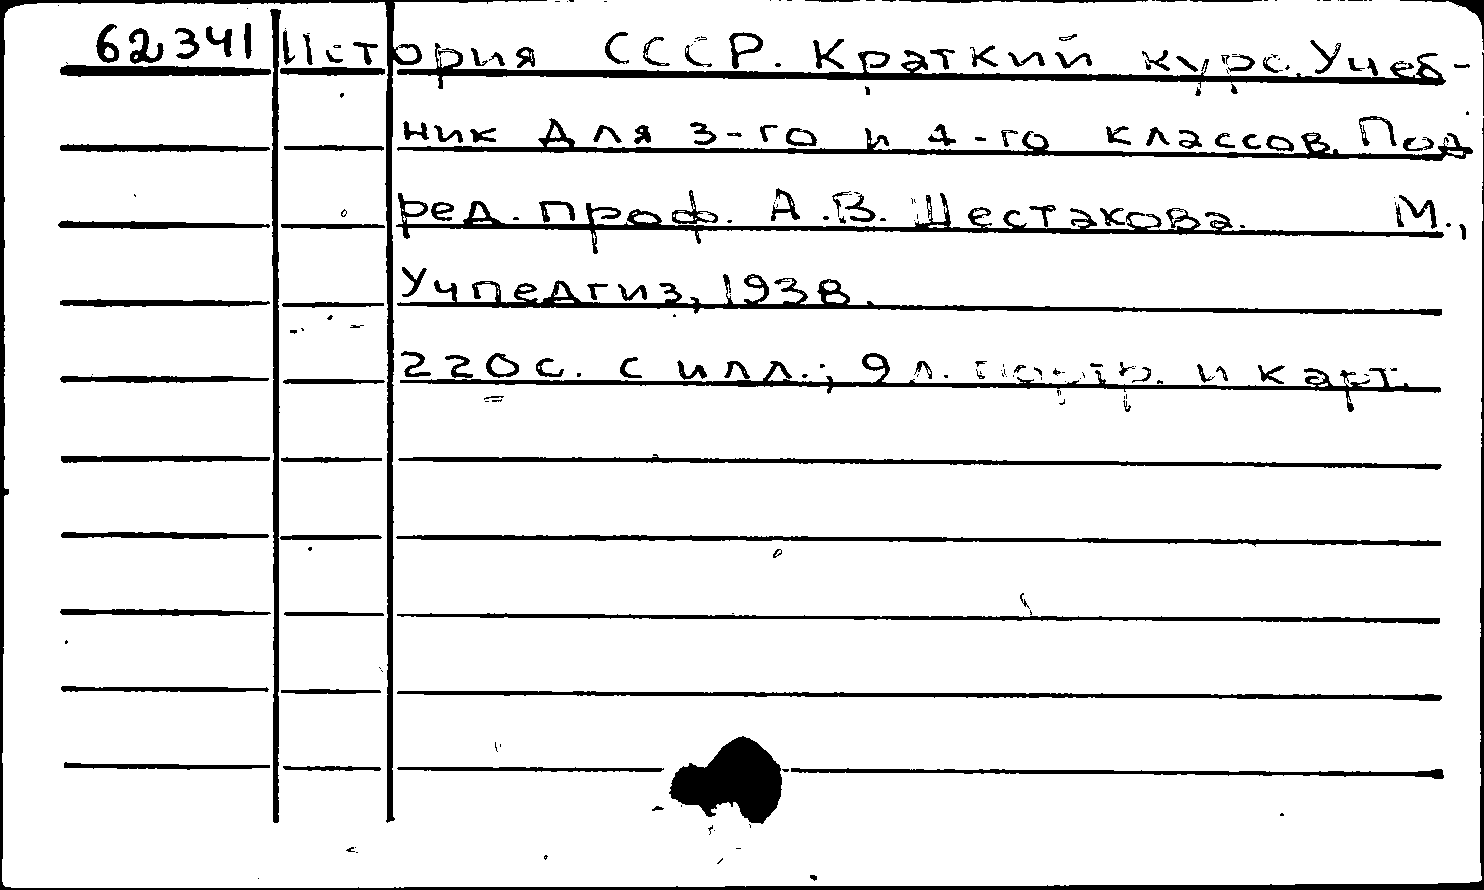 62341 История СССР. Краткий курс. Учеб-
ник для 3-го и 4-го классов. Под
ред. проф. А.В. Шестакова. М.,
Учпедгиз, 1938.
220с. с илл.; 9 л. портр. и карт.